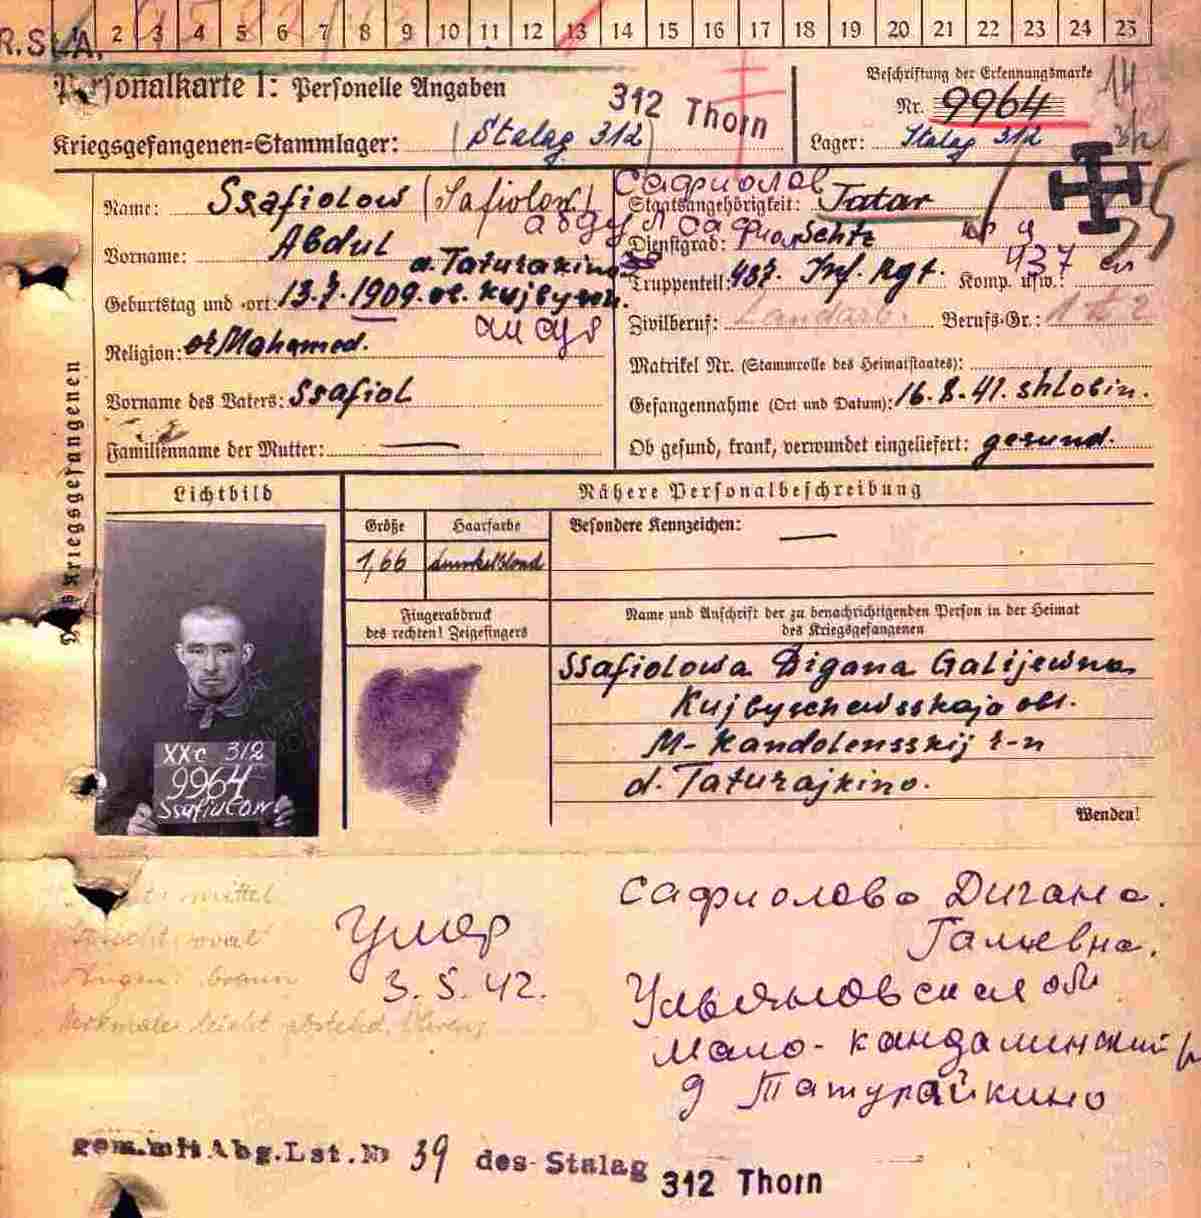 2 3 4 5 6 7 8 9 10 11 12 13 14 15 16 17 18 19 20 21 22 23 24 25
Personalkarte I: Personelle Angaben
312 Thorn
Kriegsgefangenen=Stammlager: (Stalag 312)
Beschriftung der Erkennungsmarke
Nr. 9964
Lager: Stalag 312
14
25
Des Kriegsgefangenen
Name: Ssafiolow (Safiolow)
Сафиолов
Абдул Сафиол
Vorname: Abdul
d. Taturakino
Geburtstag und -ort: 13.7.1909. ob. Kujbysch.
Religion: Mahamed.
Vorname des Vaters: Ssafiol
Familienname der Mutter: —
Staatsangehörigkeit: Tatar
Dienstgrad: Schtz
Truppenteil: 437. Inf. Rgt. Komp. usw.: 437
Zivilberuf: Landarb. Berufs-Gr.: 1
Matrikel Nr. (Stammrolle des Heimatstaates):
Gefangennahme (Ort und Datum): 16.8.41. Shlobin.
Ob gesund, krank, verwundet eingeliefert: gesund.
Lichtbild
Nähere Personalbeschreibung
Größe
Haarfarbe
Besondere Kennzeichen: —
1,66
dunkelblond
Fingerabdruck
des rechten! Zeigefingers
Name und Anschrift der zu benachrichtigenden Person in der Heimat
des Kriegsgefangenen
Ssafiolowa Digana Galijewna
Kujbyschewsskaja obl.
M-Kandolensskij r-n
d. Taturajkino.
Wenden!
XXc 312
9964
Ssafiolow
mittel
oval
Augen: braun
Merkmale: leicht abstehd. Ohren
умер
3.5.42.
Сафиолова Дигана.
Галиевна.
Ульяновская обл
Мало-кандалинский р
д Татурайкино
gem.mit Abg.Lst.№ 39 des Stalag 312 Thorn